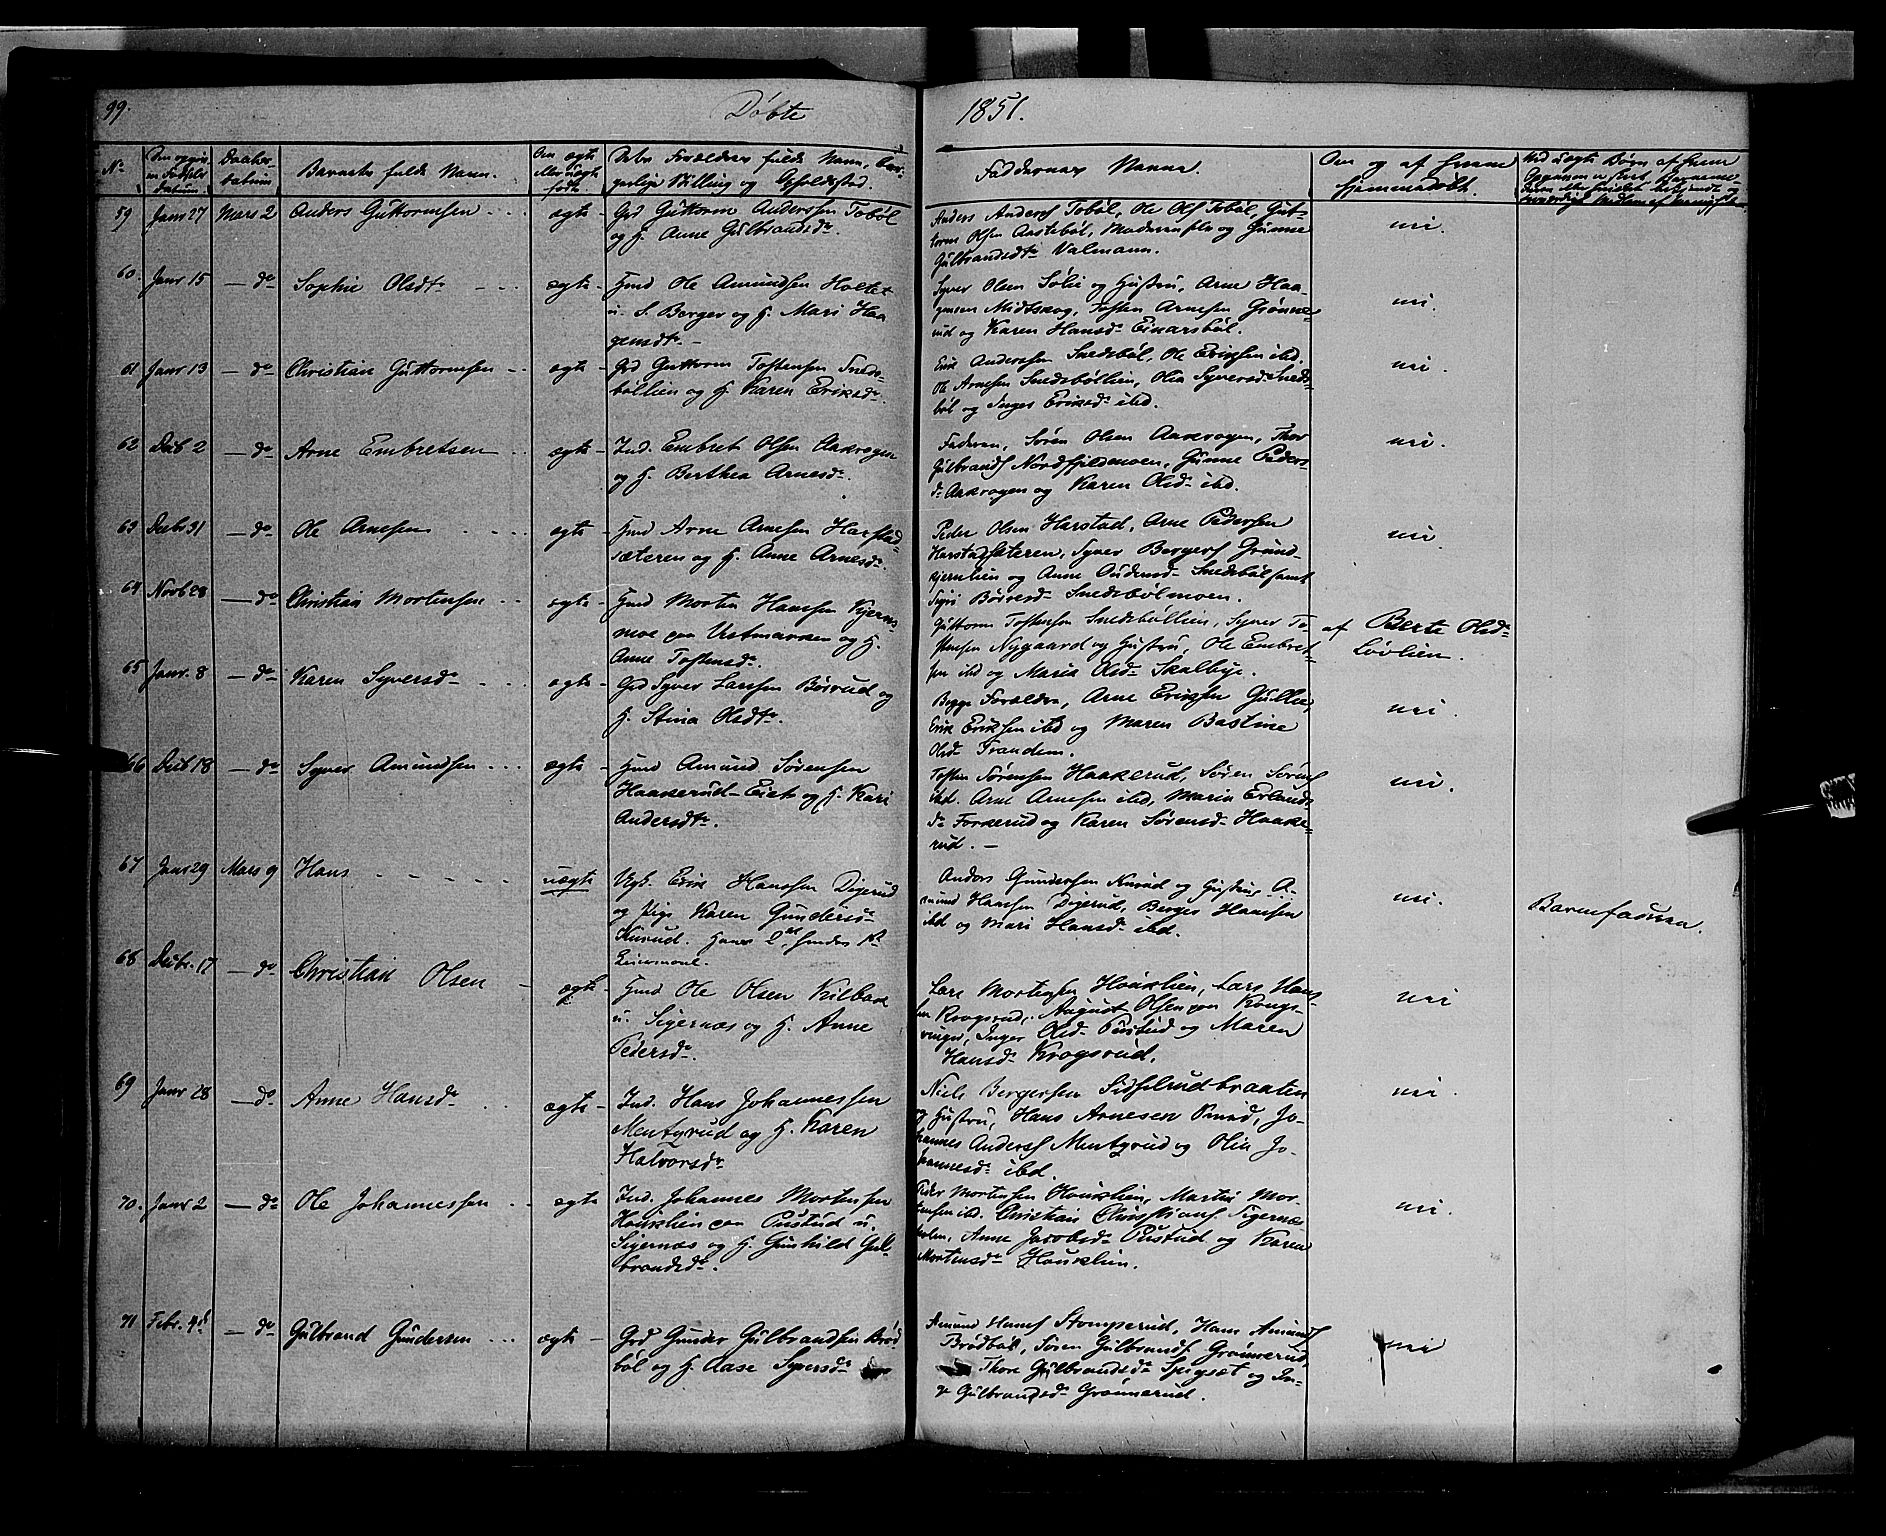 99.
Døbte
1851.
No
Daaber-
datum
Barnets fulde Navn.
Om ægte
eller uægte
født
Faddernes Navne.
Om og af hvem
hjemmedøbt.
59 Janr 27 Mars 2 Anders Guttormsen ægte Grd Guttorm Anderssen Tobøl
og H. Anne Gulbrandsdr.
Anders Anderss Tobøl, Ole Olss Tobøl, Gut-
torm Olsen Aastebøl, og Gunne
Gulbrandsdtr Valmann.
nei.
60. Janr 15 — do Sophie Olsdtr ægte Hmd Ole Amundsen Holtet
u. S. Berger og H. Mari Haa
gensdtr —
Syver Olsen Sølie og Hustru, Arne Haa-
gensen Midtskog, Tosten Arnesen Grønne-
rud og Karen Hansdr Einarsbøl.
nei.
61 Janr 13 — do Christian Guttormsen ægte Grd Guttorm Tostensen Sneds-
bøllien og H. Karen Eriksdr.
Erik Anderssen Snedsbøl, Ole Erikssen ibd.
Ole Arnesen Snedsbøllien, Olia Syversdr Sneds-
bøl og Inger Eriksdr ibd.
nei.
62 Debr 2 — do Arne Embretsen ægte Ind. Embret Olsen Aakrogen
og H. Berthea Arnesdr.
Faderen, Søren Olsen Aakrogen, Thor
Gulbrands Nordhjeldmoen, Gunne Peders
dr Aakrogen og Karen Olsdr ibd.
nei.
63 Debr 31 — do Ole Arnesen ægte Hmd Arne Arnesen Harstad-
sæteren og H. Anne Arnesdr.
Peder Olsen Harstad, Arne Pedersen
Harstadsæteren, Syver Bergers Grund-
kjernlien og Anne Snedsbøl samt
Sigri Børresdr Snedsbølmoen.
nei
64 Novb 28 — do Christian Mortensen ægte Hmd Morten Hansen Kjerns-
moe paa Vestmarken og H.
Anne Tostensdr.
Guttorm Tostensen Snedsbøllien, Syver To-
stensen Nygaard og Hustru, Ole Embret-
sen ibd og Maria Olsdr Skalbye.
af Berte Olsdr
Løvlien.
65 Janr. 8 — do Karen Syversdr ægte Grd Syver Larssen Børrud og
H. Stina Olsdtr.
Begge Forældre, Arne Erikssen Gullie,
Erik Erikssen ibd og Maren Bastine
Olsdr Trandem.
nei.
66 Debr 18 — do Syver Amundsen ægte Hmd Amund Sørensen
Haakerud-Eiet og H. Kari
Andersdtr.
Tosten Sørensen Haakerud, Søren Sørens
ibd. Arne Arnesen ibd, Maria Erlands
dr Forkerud og Karen Sørensdr Haake-
rud. —
nei.
67 Janr 29 Mars 9 Hans uægte Ugk. Erik Hanssen Digerud
og Pige Karen Gundersdr
Knrud. Hans 2den hendes 1ste
Leiermaal.
Anders Gundersen Knrud og Hustru, A-
mund Hanssen Digerud, Berger Hanssen
ibd og Mari Hansdr ibd.
nei.
Barnefaderen.
68 Debr. 17 — do Christian Olsen ægte Hmd Ole Olsen Kilbak
u. Sigernæs og H. Anne
Pedersdr.
Lars Mortensen Houklien, Lars Han-
sen Krogsrud, August Olsen paa Kongs-
vinger, Inger Olsdr Pustud og Maren
Hansdr Krogsrud.
nei
69 Janr 28 — do Anne Hansdr ægte Ind. Hans Johannessen
Mentzrud og H. Karen
Halvorsdr
Niels Bergersen Sidselrudbraaten
og Hustru, Hans Arnesen Rud, Jo-
hannes Anderss Mentzrud og Olia Jo-
hannesdr ibd.
nei.
70. Janr 2 — do Ole Johannessen ægte Ind. Johannes Mortensen
Houklien paa Pustud u.
Sigernæs og H. Gunhild Gul-
brandsdr.
Peder Mortensen Houklien, Martin Mor-
tensen ibd. Christian Christians Sigernæs
holen, Anne Jacobsdr Pustud og Karen
Mortensdr Houklien.
nei.
71 Febr. 4d — do Gulbrand Gundersen ægte Grd Gunder Gulbrandsen Brød-
bøl og H. Aase Syversdr
Amund Hanss Stomperud, Hans Amunds
Brødbøl, Søren Gulbrands Grønnerud,
Thore Gulbrandsdr Spigsæt og In-
gr Gulbrandsdr Grønnerud.
nei